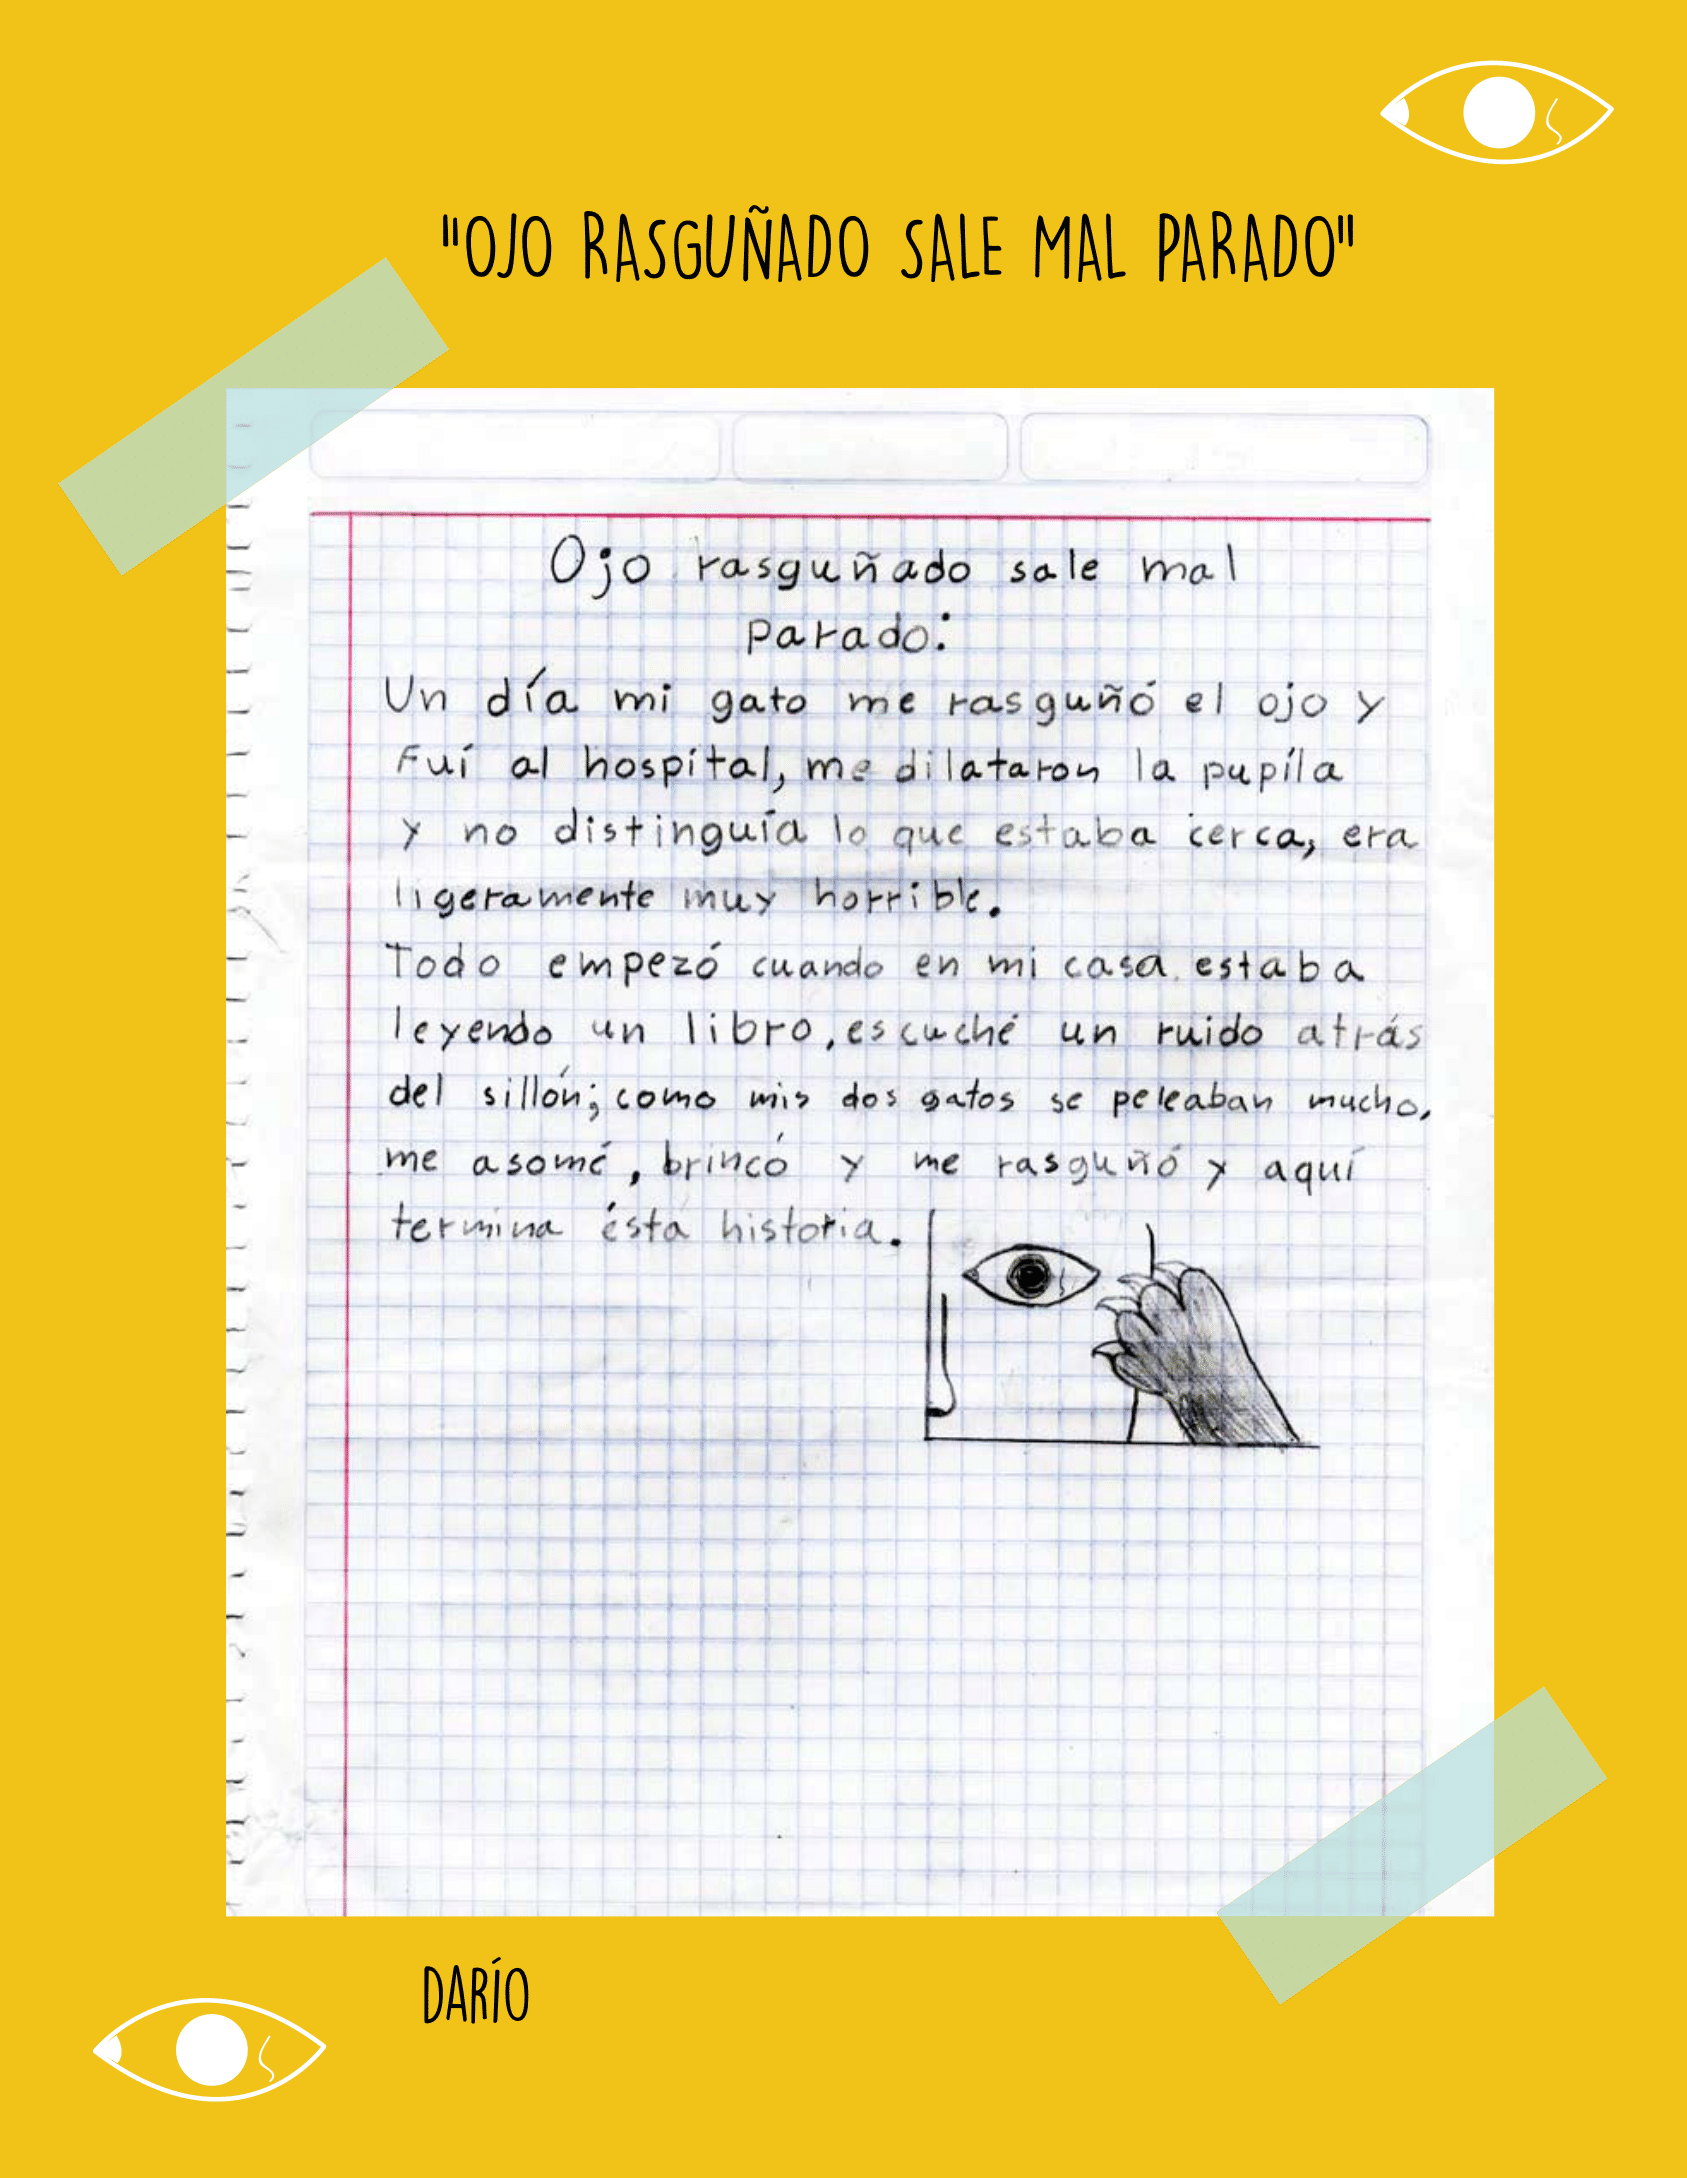 "OJO RASGUÑADO SALE MAL PARADO"
Ojo rasguñado sale mal
parado:
Un día mi gato me rasguñó el ojo y
Fuí al hospital, me dilataron la pupila
y no distinguía lo que estaba cerca, era
ligeramente muy horrible.
Todo empezó cuando en mi casa estaba
leyendo un libro, escuché un ruido atrás
del sillón; como mis dos gatos se peleaban mucho,
me asomé, brincó y me rasguñó y aquí
termina ésta historia.
DARÍO